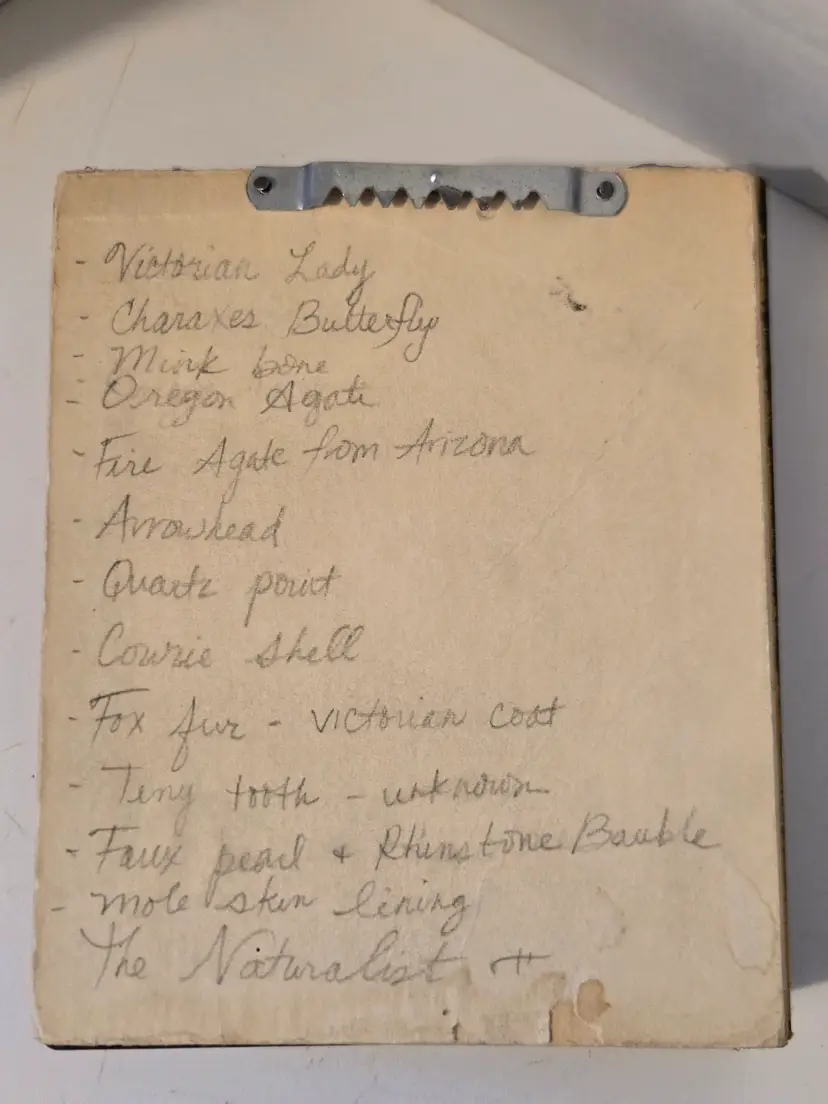 - Victorian Lady
- Charaxes Butterfly
- Mink bone
- Oregon Agate
- Fire Agate from Arizona
- Arrowhead
- Quartz point
- Cowrie shell
- Fox fur - victorian coat
- Tiny tooth - unknown
- Faux pearl + Rhinstone Bauble
- Mole skin lining
The Naturalist